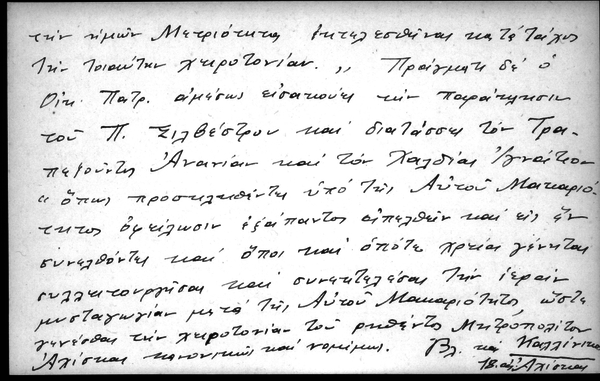 τὴν ἡμῶν Μετριότητα ἐκτελεσθῆναι κατὰ τάχος
τὴν τοιαύτην χειροτονίαν.,, Πράγματι δὲ ὁ
Οἰκ. Πατρ. ἀμέσως εἰσακούει τὴν παράκλησιν
τοῦ Π. Σιλβέστρου καὶ διατάσσει τὸν Τρα-
πεζοῦντος Ἀνανίαν καὶ τὸν Χαλδίας Ἰγνάτιον
"ὅπως προσκληθέντες ὑπὸ τῆς Αὐτοῦ Μακαριό-
τητος ὀφείλωσιν ἐξάπαντος ἀπελθεῖν καὶ εἰς ἓν
συνελθόντες καὶ ὅποι καὶ ὁπότε χρεία γένηται
συλλειτουργῆσαι καὶ συνεκτελέσαι τὴν ἱερὰν
μυσταγωγίαν μετὰ τῆς Αὐτοῦ Μακαριότητος, ὥστε
γενέσθαι τὴν χειροτονίαν τοῦ ρηθέντος Μητροπολίτου
Ἀχίσκας κανονικῶς καὶ νομίμως. Βλ. καὶ Καλλίνικος
Ἀχίσκας